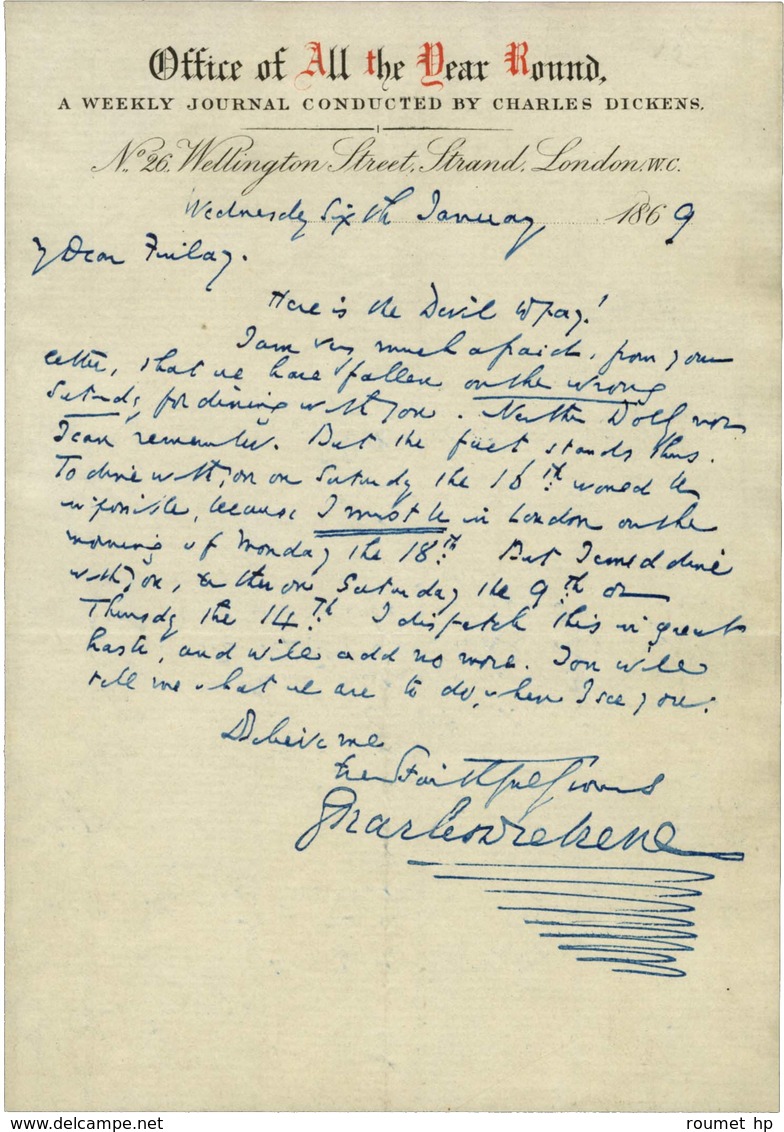 Office of All the Year Round,
A WEEKLY JOURNAL CONDUCTED BY CHARLES DICKENS.
No. 26. Wellington Street, Strand, London. W.C.
Wednesday Sixth January 1869
My Dear Finlay.
Here is the Devil to pay!
I am very much afraid, from your
letter, that we have fallen on the wrong
Saturday, for dining with you. Neither Dolby nor
I can remember. But the fact stands thus.
To dine with you on Saturday the 16th would be
impossible, because I must be in London on the
morning of Monday the 18th. But I could dine
with you, either on Saturday the 9th or
Thursday the 14th. I dispatch this in great
haste, and will add no more. You will
tell me what we are to do, when I see you.
Believe me
Ever Faithfully Yours
Charles Dickens
www.delcampe.net
roumet hp